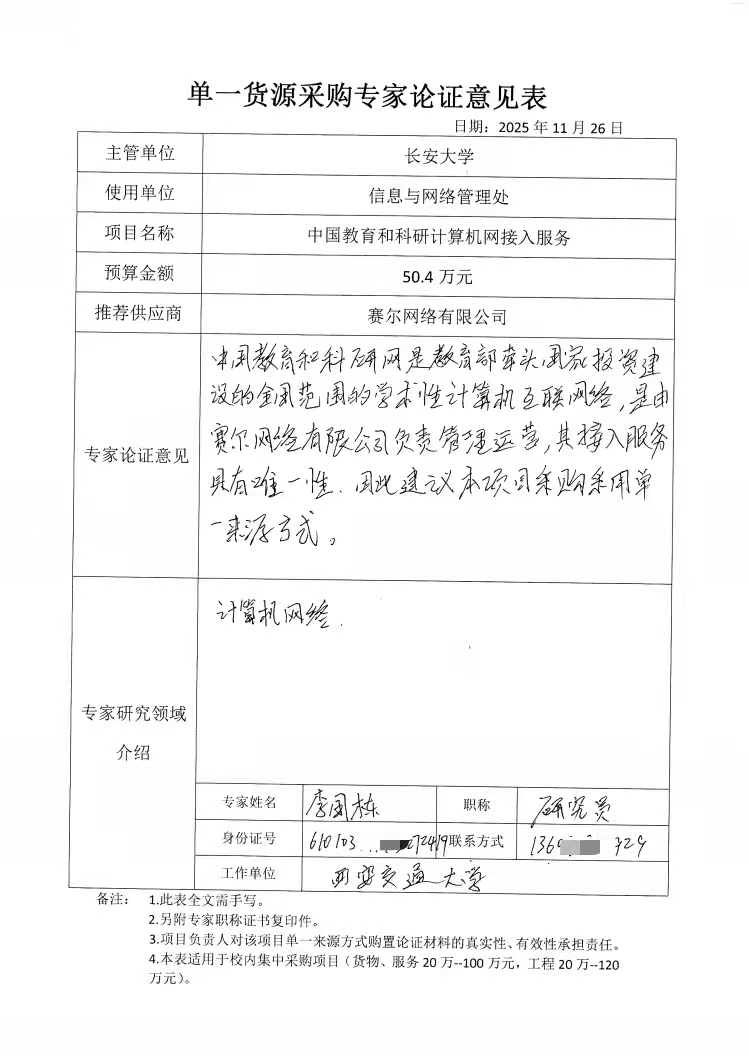 单一货源采购专家论证意见表
日期：2025 年 11 月 26 日
主管单位 长安大学
使用单位 信息与网络管理处
项目名称 中国教育和科研计算机网接入服务
预算金额 50.4 万元
推荐供应商 赛尔网络有限公司
专家论证意见
中国教育和科研网是教育部牵头国家投资建
设的全国范围的学术性计算机互联网络，是由
赛尔网络有限公司负责管理运营，其接入服务
具有唯一性．因此建议本项目采购采用单
一来源方式。
专家研究领域
介绍
计算机网络．
专家姓名 李国栋 职称 研究员
身份证号 610103 联系方式 136
工作单位 西安交通大学
备注： 1.此表全文需手写。
2.另附专家职称证书复印件。
3.项目负责人对该项目单一来源方式购置论证材料的真实性、有效性承担责任。
4.本表适用于校内集中采购项目（货物、服务 20 万--100 万元，工程 20 万--120
万元）。